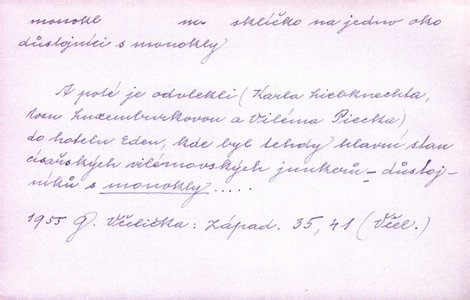 monokl na sklíčko na jedno oko
důstojníci s monokly
A poté je odvlekli (Karla Liebknechta,
Rosu Luxemburkovou a Viléma Piecka)
do hotelu Eden, kde byl tehdy hlavní stan
císařských vilémovských junkerů – důstoj-
níků s monokly.....
1955 G. Včelička: Západ. 35, 41 (Včel.)